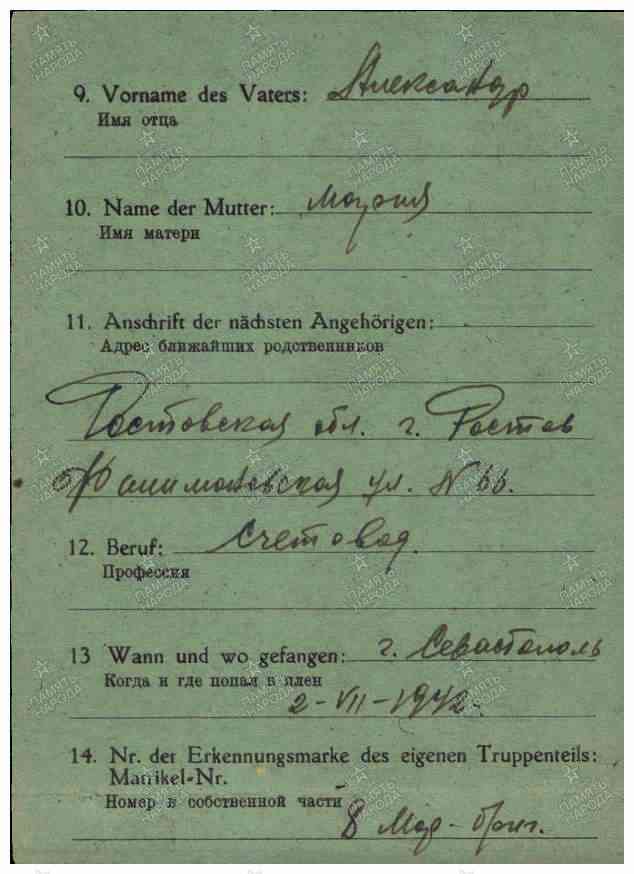 9. Vorname des Vaters: Александр
Имя отца
10. Name der Mutter: Мария
Имя матери
11. Anschrift der nächsten Angehörigen:
Адрес ближайших родственников
Ростовская обл. г. Ростов
ул. N 66.
12. Beruf: Счетовод.
Профессия
13 Wann und wo gefangen: г. Севастополь
Когда и где попал в плен
2-VII-1942.
14. Nr. der Erkennungsmarke des eigenen Truppenteils:
Matrikel-Nr.
Номер в собственной части
8 Мор-бриг.
ПАМЯТЬ НАРОДА